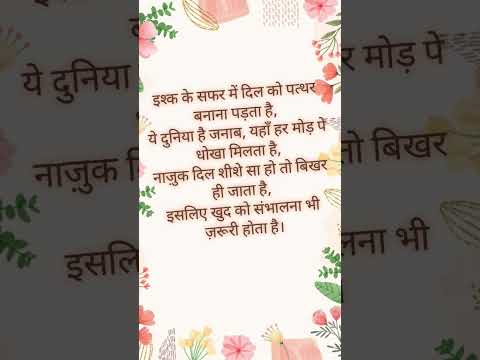 इश्क के सफर में दिल को पत्थर
बनाना पड़ता है,
ये दुनिया है जनाब, यहाँ हर मोड़ पे
धोखा मिलता है,
नाज़ुक दिल शीशे सा हो तो बिखर
ही जाता है,
इसलिए खुद को संभालना भी
ज़रूरी होता है।